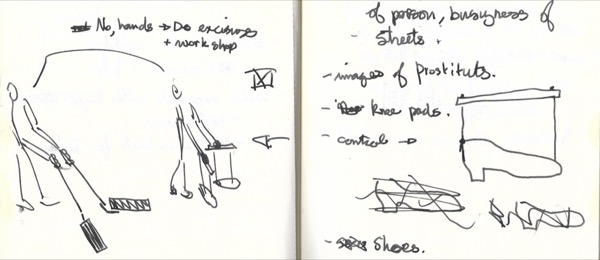 No, hands → Do excisises
+ work shop
of poison, busyness of
- streets.
- images of Prostituts.
- knee pads.
- control →
- shoes.